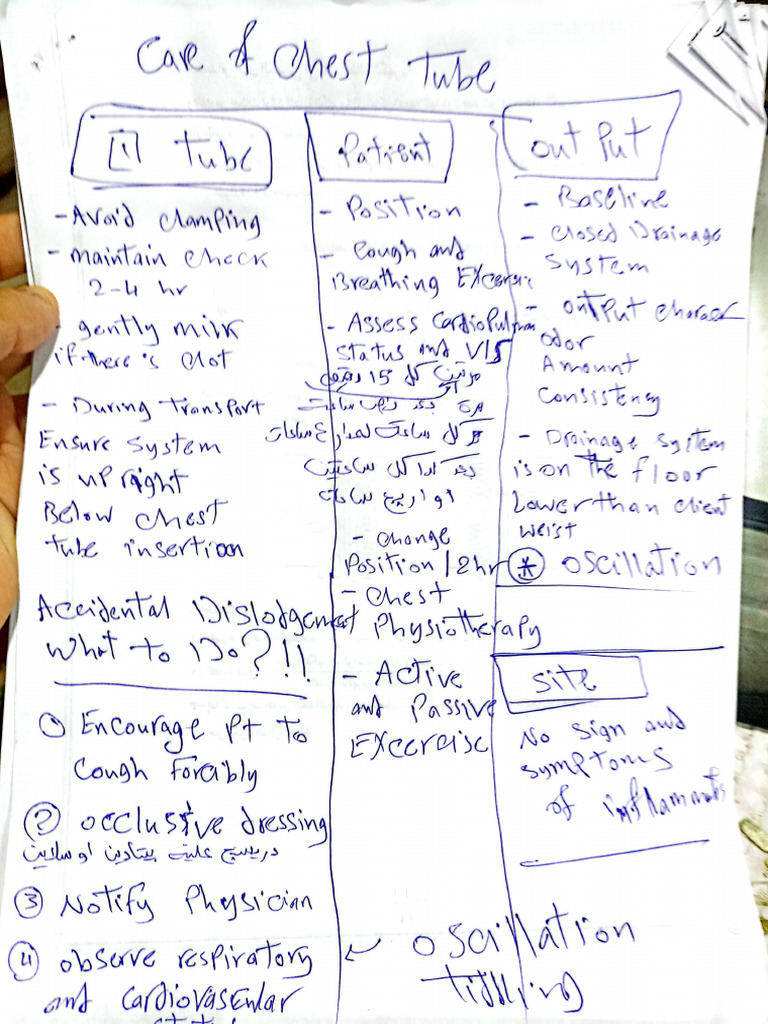 Care of Chest Tube
1 Tube
- Avoid clamping
- maintain check
2-4 hr
- gently milk
if there is clot
- During Transport
Ensure system
is up right
Below chest
tube insertion
Accidental Dislodgement
What to Do?!!
1 Encourage pt to
Cough Forcibly
2 occlusive dressing
دريسنج عليه بيتادين او سلاين
3 Notify Physician
4 observe respiratory
and cardiovascular
Patient
- Position
- Cough and
Breathing Excersise
- Assess Cardiopulmon
status and V/S
كل 15 دقيقة
بعد ساعة
كل ساعة لمدة 4 ساعات
بعد كدا كل ساعتين
او اربع ساعات
- change
Position / 2hr
- Chest
Physiotherapy
- Active
and Passive
Excercise
out Put
- Baseline
- Closed Drainage
system
- output charac
odor
Amount
Consistency
- Drainage system
is on the floor
Lower than client
weist
* oscillation
Site
No sign and
symptoms
of
oscillation